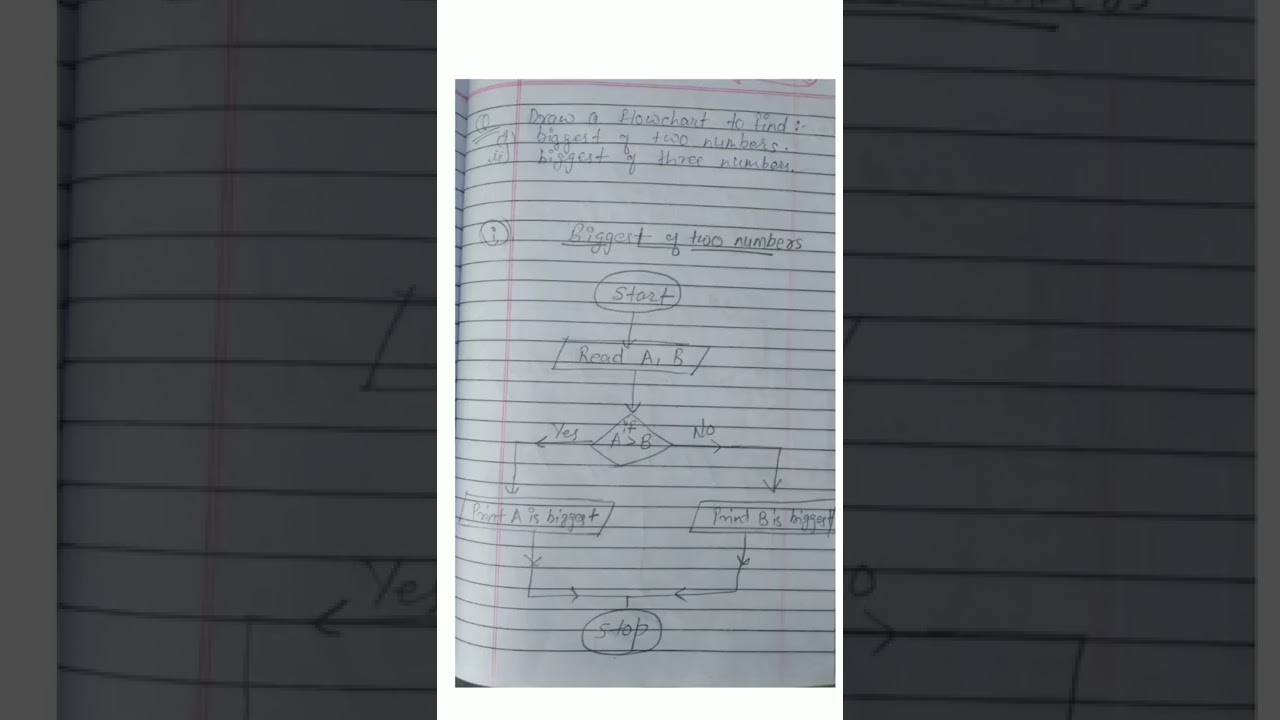 ① Draw a flowchart to find :-
i) biggest of two numbers.
ii) biggest of three numbers.
ⓘ Biggest of two numbers
Start
Read A, B
if
Yes A > B NO
Print A is biggest Print B is biggest
Stop
Yes